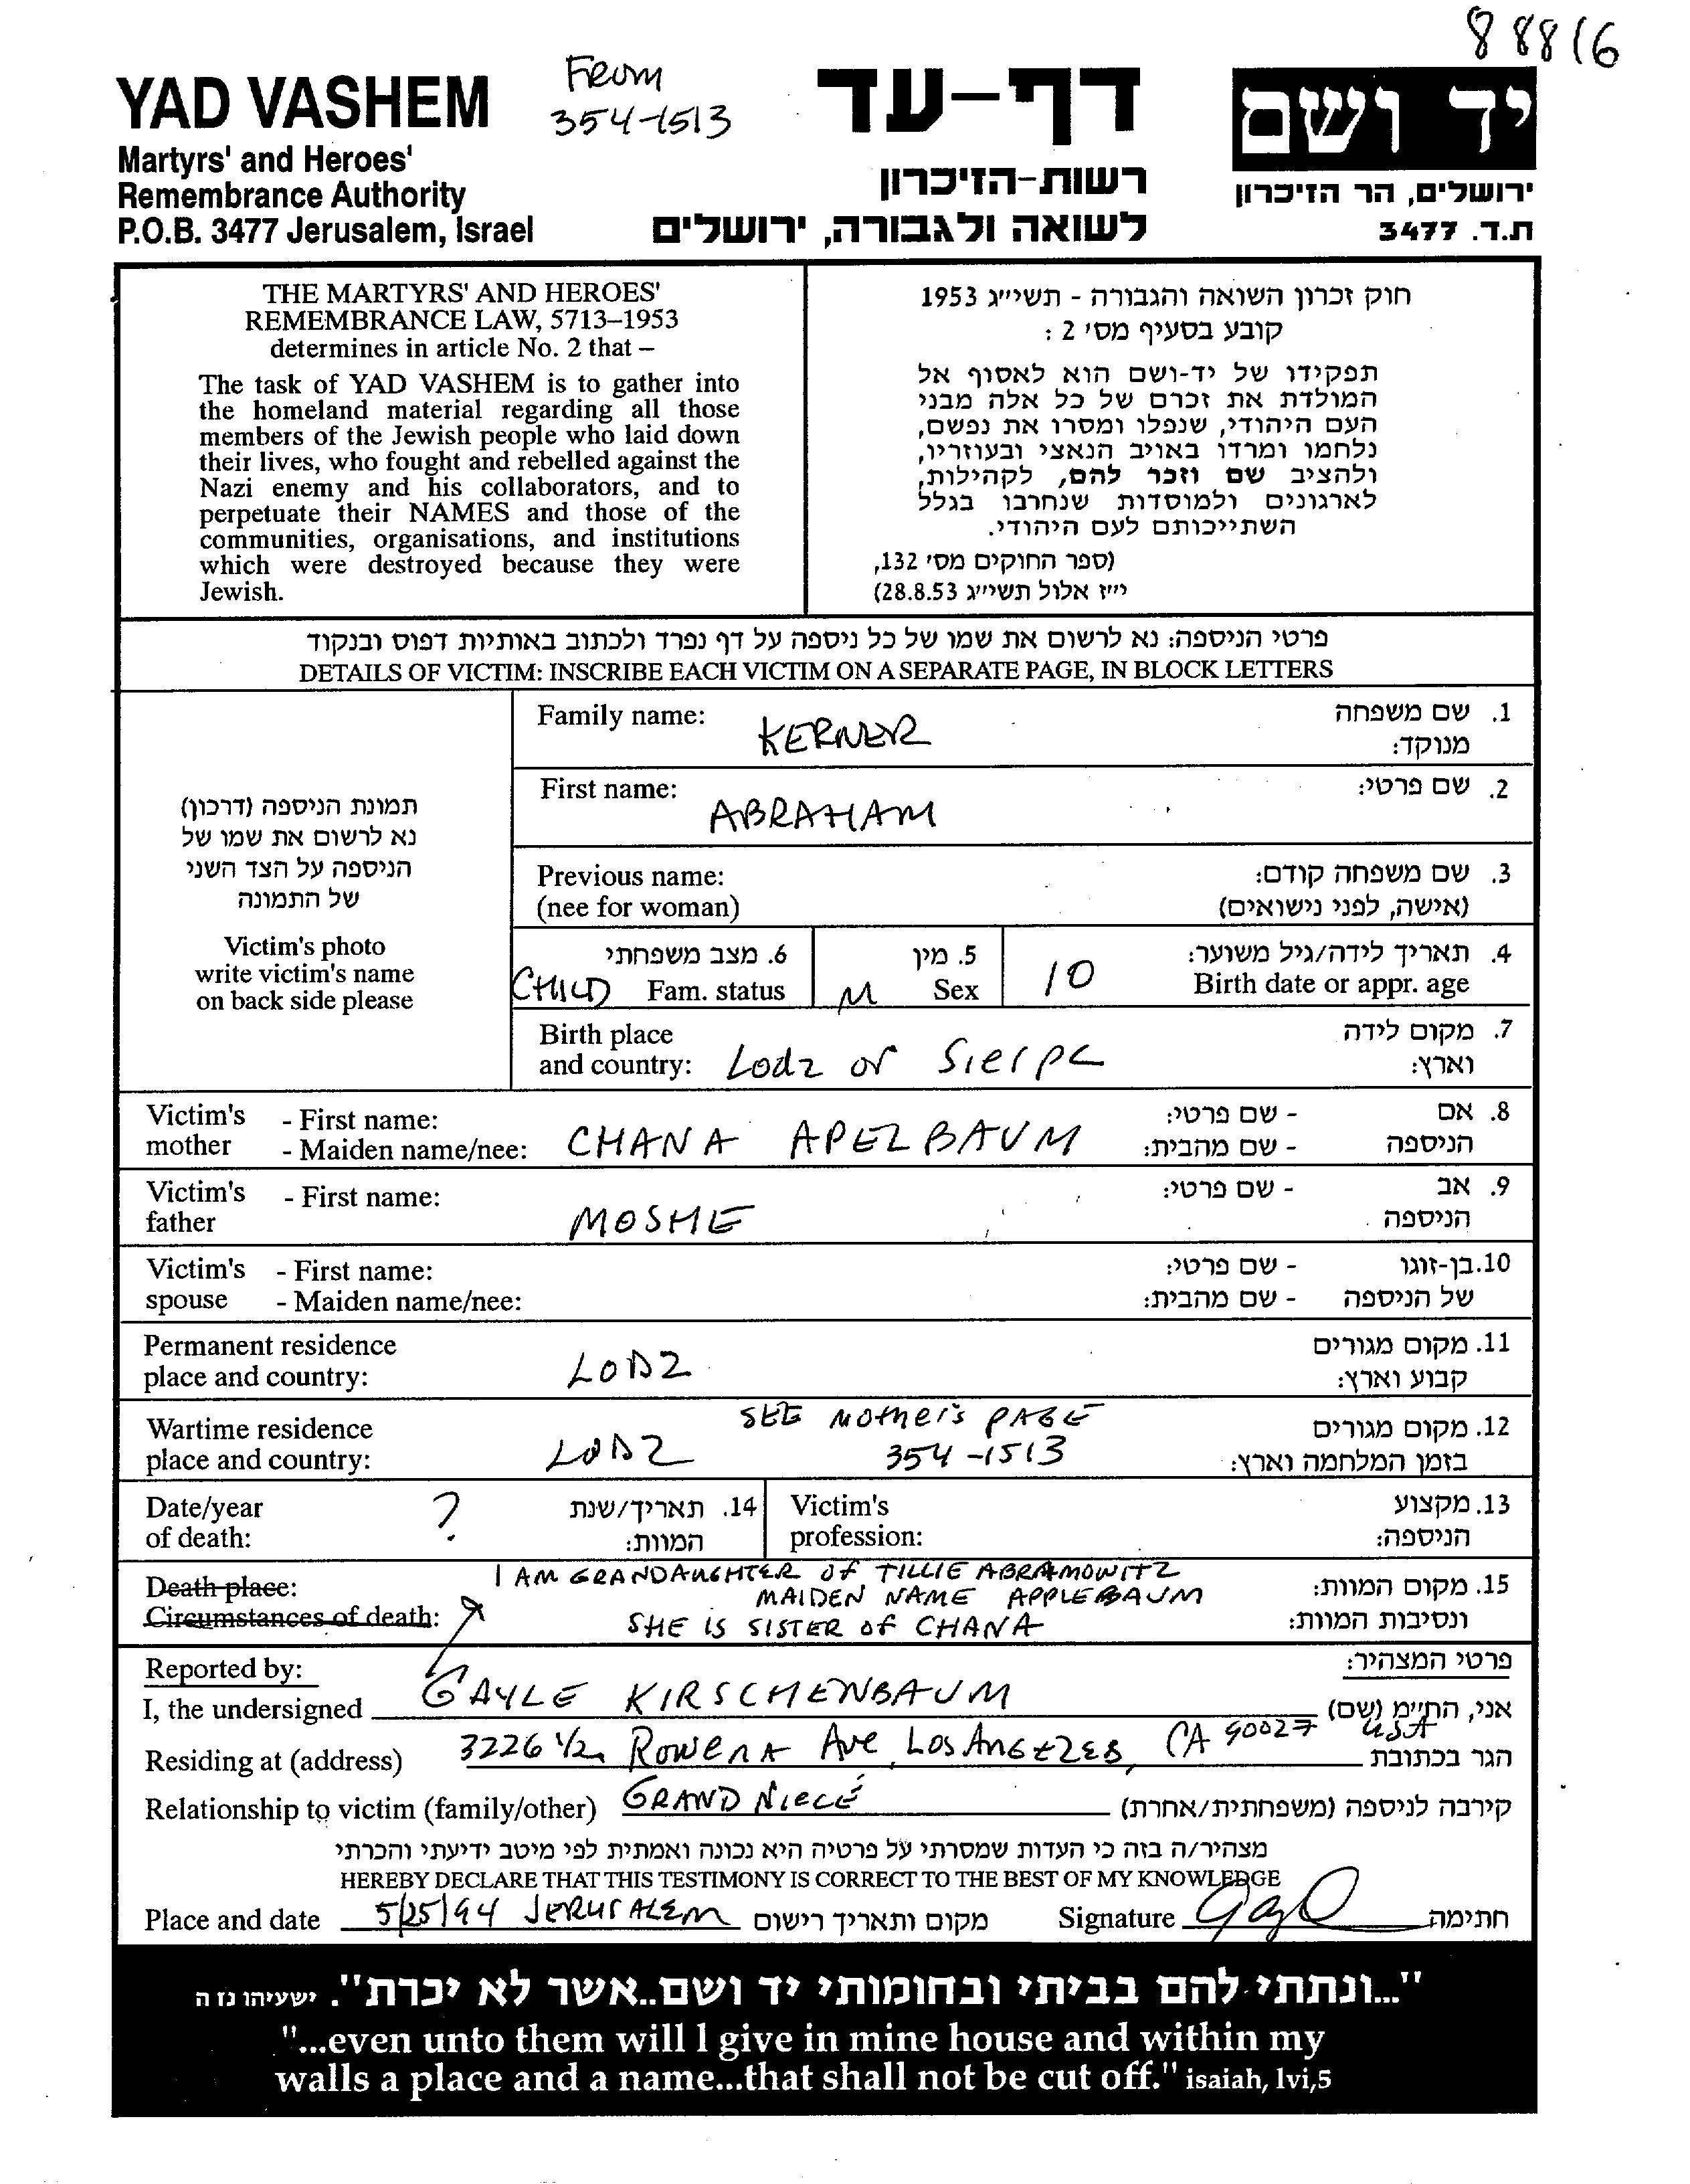 88816
YAD VASHEM
From
354-1513
דף-עד
יד ושם
Martyrs' and Heroes'
Remembrance Authority
P.O.B. 3477 Jerusalem, Israel
רשות-הזיכרון
לשואה ולגבורה, ירושלים
ירושלים, הר הזיכרון
ת.ד. 3477
THE MARTYRS' AND HEROES'
REMEMBRANCE LAW, 5713–1953
determines in article No. 2 that –
The task of YAD VASHEM is to gather into
the homeland material regarding all those
members of the Jewish people who laid down
their lives, who fought and rebelled against the
Nazi enemy and his collaborators, and to
perpetuate their NAMES and those of the
communities, organisations, and institutions
which were destroyed because they were
Jewish.
חוק זכרון השואה והגבורה - תשי״ג 1953
קובע בסעיף מס׳ 2 :
תפקידו של יד-ושם הוא לאסוף אל
המולדת את זכרם של כל אלה מבני
העם היהודי, שנפלו ומסרו את נפשם,
נלחמו ומרדו באויב הנאצי ובעוזריו,
ולהציב שם וזכר להם, לקהילות,
לארגונים ולמוסדות שנחרבו בגלל
השתייכותם לעם היהודי.
(ספר החוקים מס׳ 132,
י״ז אלול תשי״ג 28.8.53)
פרטי הניספה: נא לרשום את שמו של כל ניספה על דף נפרד ולכתוב באותיות דפוס ובנקוד
DETAILS OF VICTIM: INSCRIBE EACH VICTIM ON A SEPARATE PAGE, IN BLOCK LETTERS
תמונת הניספה (דרכון)
נא לרשום את שמו של
הניספה על הצד השני
של התמונה
Victim's photo
write victim's name
on back side please
Family name: KERNER 1. שם משפחה
מנוקד:
First name: ABRAHAM 2. שם פרטי:
Previous name: 3. שם משפחה קודם:
(nee for woman) (אישה, לפני נישואים)
6. מצב משפחתי 5. מין 4. תאריך לידה/גיל משוער:
CHILD Fam. status M Sex 10 Birth date or appr. age
Birth place 7. מקום לידה
and country: Lodz or Sierpc וארץ:
Victim's - First name: - שם פרטי: 8. אם
mother - Maiden name/nee: CHANA APELBAUM - שם מהבית: הניספה
Victim's - First name: - שם פרטי: 9. אב
father MOSHE הניספה
Victim's - First name: - שם פרטי: 10. בן-זוגו
spouse - Maiden name/nee: - שם מהבית: של הניספה
Permanent residence 11. מקום מגורים
place and country: LODZ קבוע וארץ:
Wartime residence SEE Mother's PAGE 12. מקום מגורים
place and country: LODZ 354-1513 בזמן המלחמה וארץ:
Date/year ? 14. תאריך/שנת Victim's 13. מקצוע
of death: המוות: profession: הניספה:
I AM GRANDAUGHTER OF TILLIE ABRAMOWITZ
Death place: MAIDEN NAME APPLEBAUM 15. מקום המוות:
Circumstances of death: SHE IS SISTER OF CHANA ונסיבות המוות:
Reported by: פרטי המצהיר:
I, the undersigned GAYLE KIRSCHENBAUM אני, החי״מ (שם)
Residing at (address) 3226 1/2 Rowena Ave, Los Angeles, CA 90027 USA הגר בכתובת
Relationship to victim (family/other) GRAND NIECE קירבה לניספה (משפחתית/אחרת)
מצהיר/ה בזה כי העדות שמסרתי על פרטיה היא נכונה ואמתית לפי מיטב ידיעתי והכרתי
HEREBY DECLARE THAT THIS TESTIMONY IS CORRECT TO THE BEST OF MY KNOWLEDGE
Place and date 5/25/94 JERUSALEM מקום ותאריך רישום Signature חתימה
"...ונתתי להם בביתי ובחומותי יד ושם..אשר לא יכרת". ישעיהו נז ה
"...even unto them will I give in mine house and within my
walls a place and a name...that shall not be cut off." isaiah, lvi,5